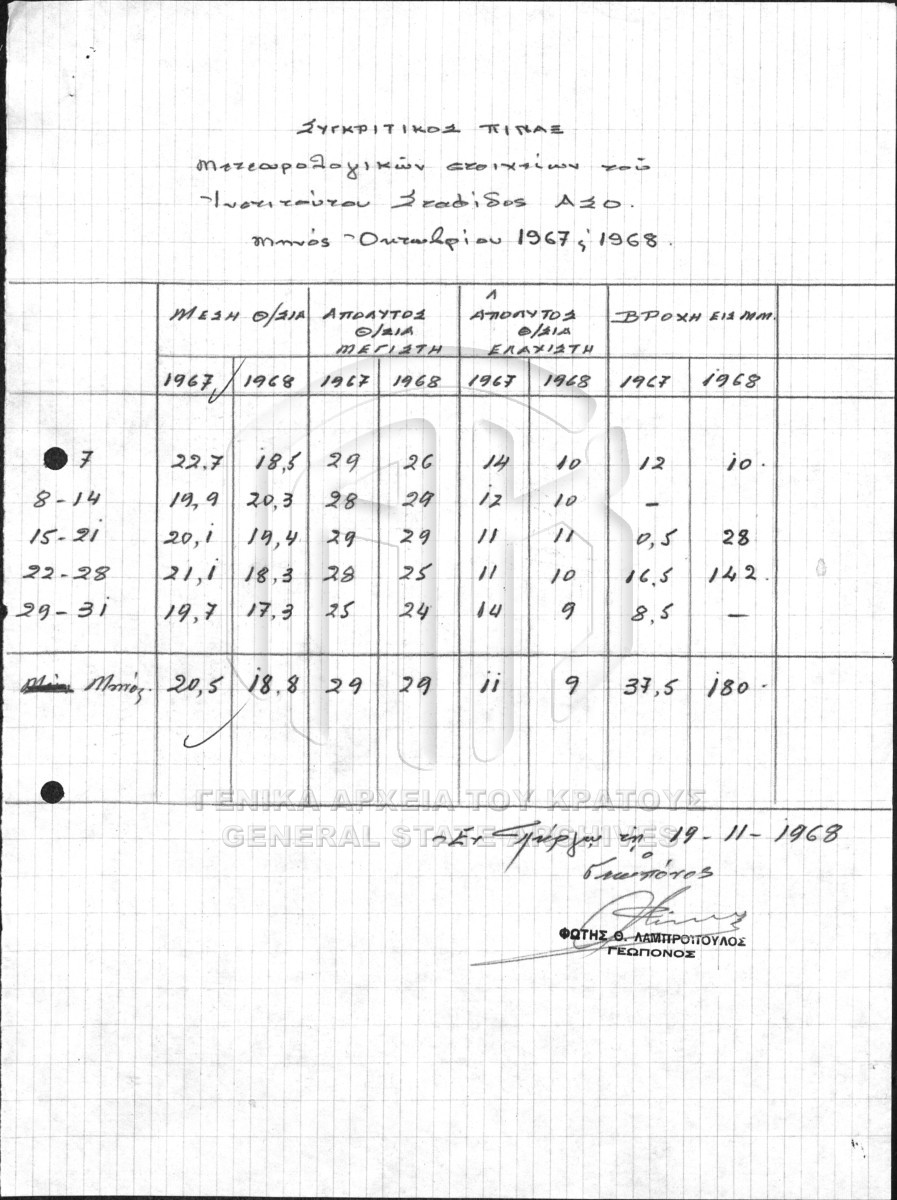 ΣΥΓΚΡΙΤΙΚΟΣ ΠΙΝΑΞ
Μετεωρολογικών στοιχείων τού
Ινστιτούτου Σταφίδος ΑΣΟ.
Μηνός Οκτωβρίου 1967 & 1968.
ΜΕΣΗ Θ/ΣΙΑ ΑΠΟΛΥΤΟΣ Θ/ΣΙΑ ΜΕΓΙΣΤΗ ΑΠΟΛΥΤΟΣ Θ/ΣΙΑ ΕΛΑΧΙΣΤΗ ΒΡΟΧΗ ΕΙΣ ΜΜ.
1967 1968 1967 1968 1967 1968 1967 1968
7 22.7 18,5 29 26 14 10 12 10.
8-14 19,9 20,3 28 29 12 10 –
15-21 20,1 19,4 29 29 11 11 0,5 28
22-28 21,1 18,3 28 25 11 10 16,5 142.
29-31 19,7 17,3 25 24 14 9 8,5 –
Μηνός. 20,5 18,8 29 29 11 9 37,5 180.
ΓΕΝΙΚΑ ΑΡΧΕΙΑ ΤΟΥ ΚΡΑΤΟΥΣ
GENERAL STATE ARCHIVES
Εν Πύργω τη 19-11-1968
ο
Γεωπόνος
ΦΩΤΗΣ Θ. ΛΑΜΠΡΟΠΟΥΛΟΣ
ΓΕΩΠΟΝΟΣ